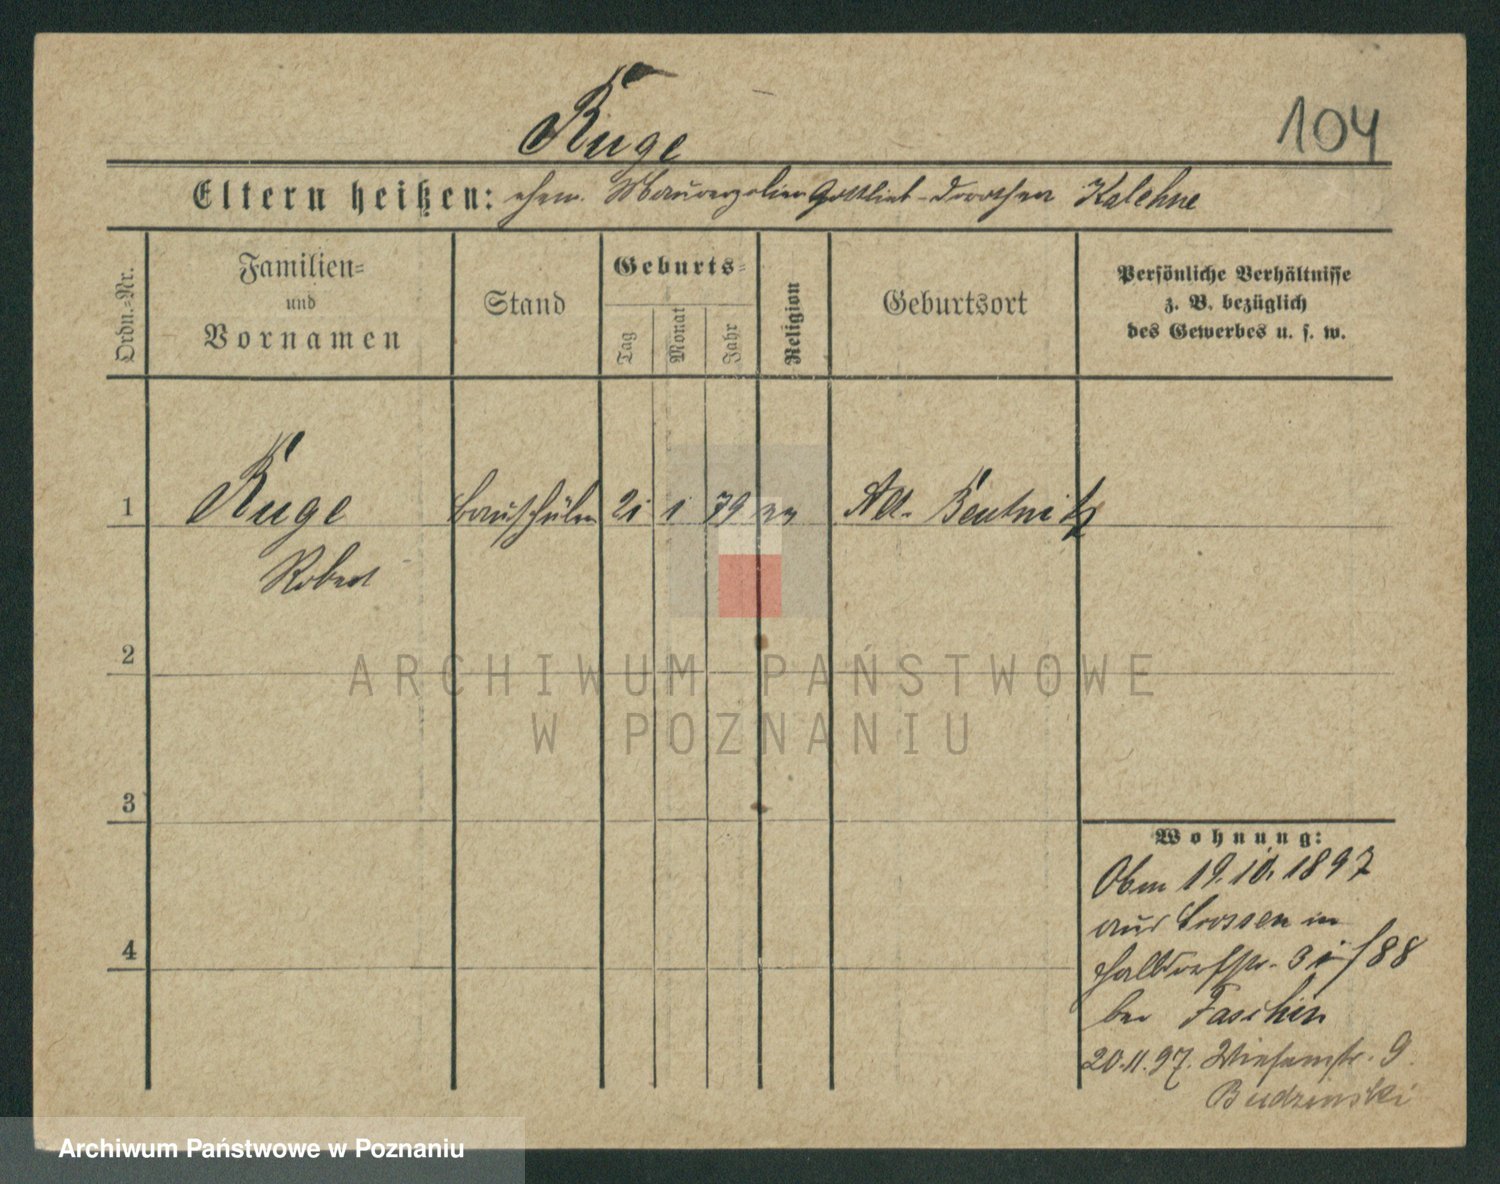 Ruge
104
Eltern heißen: ehem. Gottlieb - Dorothea Kalehne
Ordn.-Nr.
Familien-
und
Vornamen
Stand
Geburts-
Tag
Monat
Jahr
Religion
Geburtsort
Persönliche Verhältnisse
z. B. bezüglich
des Gewerbes u. s. w.
1 Ruge Bauschüler 21 1 79 ev Alt-Beutnitz
Robert
2
3
4
Wohnung:
Oben 19.10.1897
aus Crossen in
Halbdorfstr. 31/88
bei Faschin
20.11.97. Wiesenstr. 9
Budzinski
ARCHIWUM PAŃSTWOWE
W POZNANIU
Archiwum Państwowe w Poznaniu